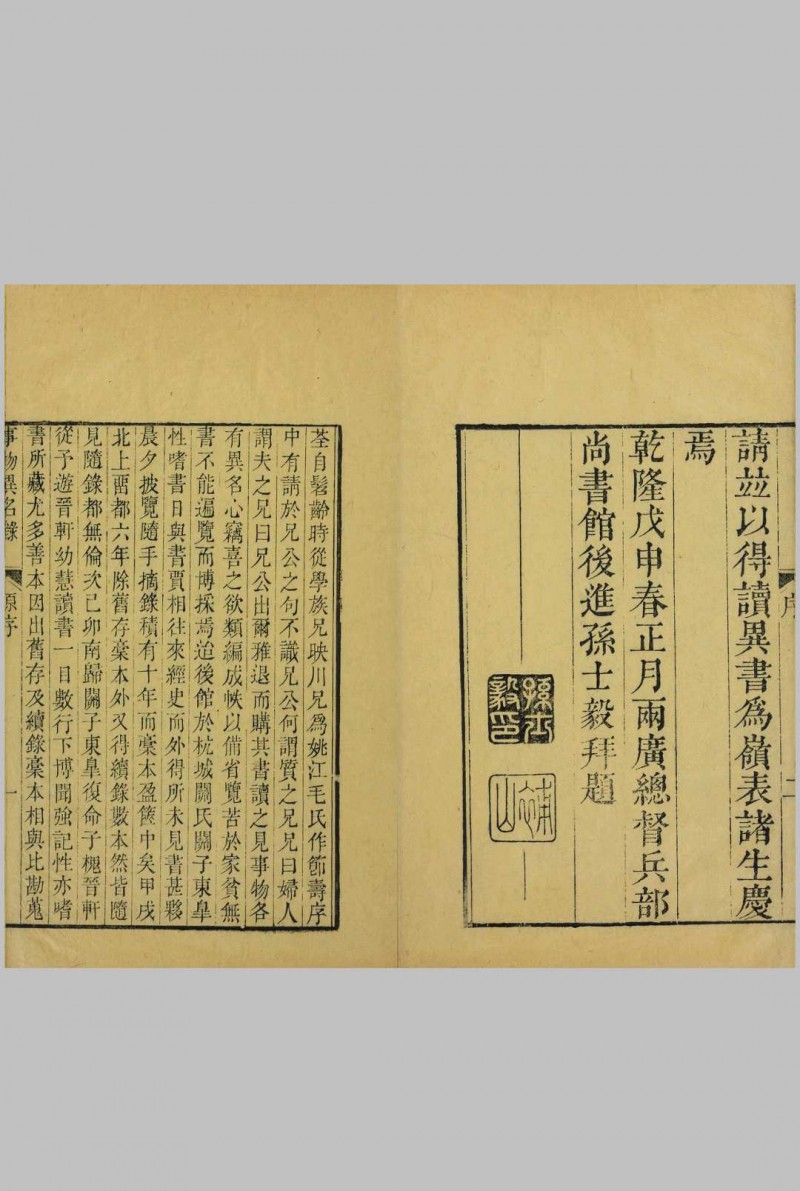 序
二
請並以得讀異書為嶺表諸生慶
焉
乾隆戊申春正月兩廣總督兵部
尚書館後進孫士毅拜題
孫士毅印
補山
荃自髫齡時從學族兄映川兄為姚江毛氏作節壽序
中有請於兄公之句不識兄公何謂質之兄兄曰婦人
謂夫之兄曰兄公出爾雅退而購其書讀之見事物各
有異名心竊喜之欲類編成帙以備省覽苦於家貧無
書不能遍覽而博採焉迨後館於杭城關氏關子東臯
性嗜書日與書賈相往來經史而外得所未見書甚夥
晨夕披覽隨手摘錄積有十年而稾本盈篋中矣甲戌
北上畱都六年除舊存稾本外又得續錄數本然皆隨
見隨錄都無倫次己卯南歸關子東臯復命子槐晉軒
從予遊晉軒幼慧讀書一目數行下博聞強記性亦嗜
書所藏尤多善本因出舊存及續錄稾本相與比勘蒐
事物異名錄
原序
一